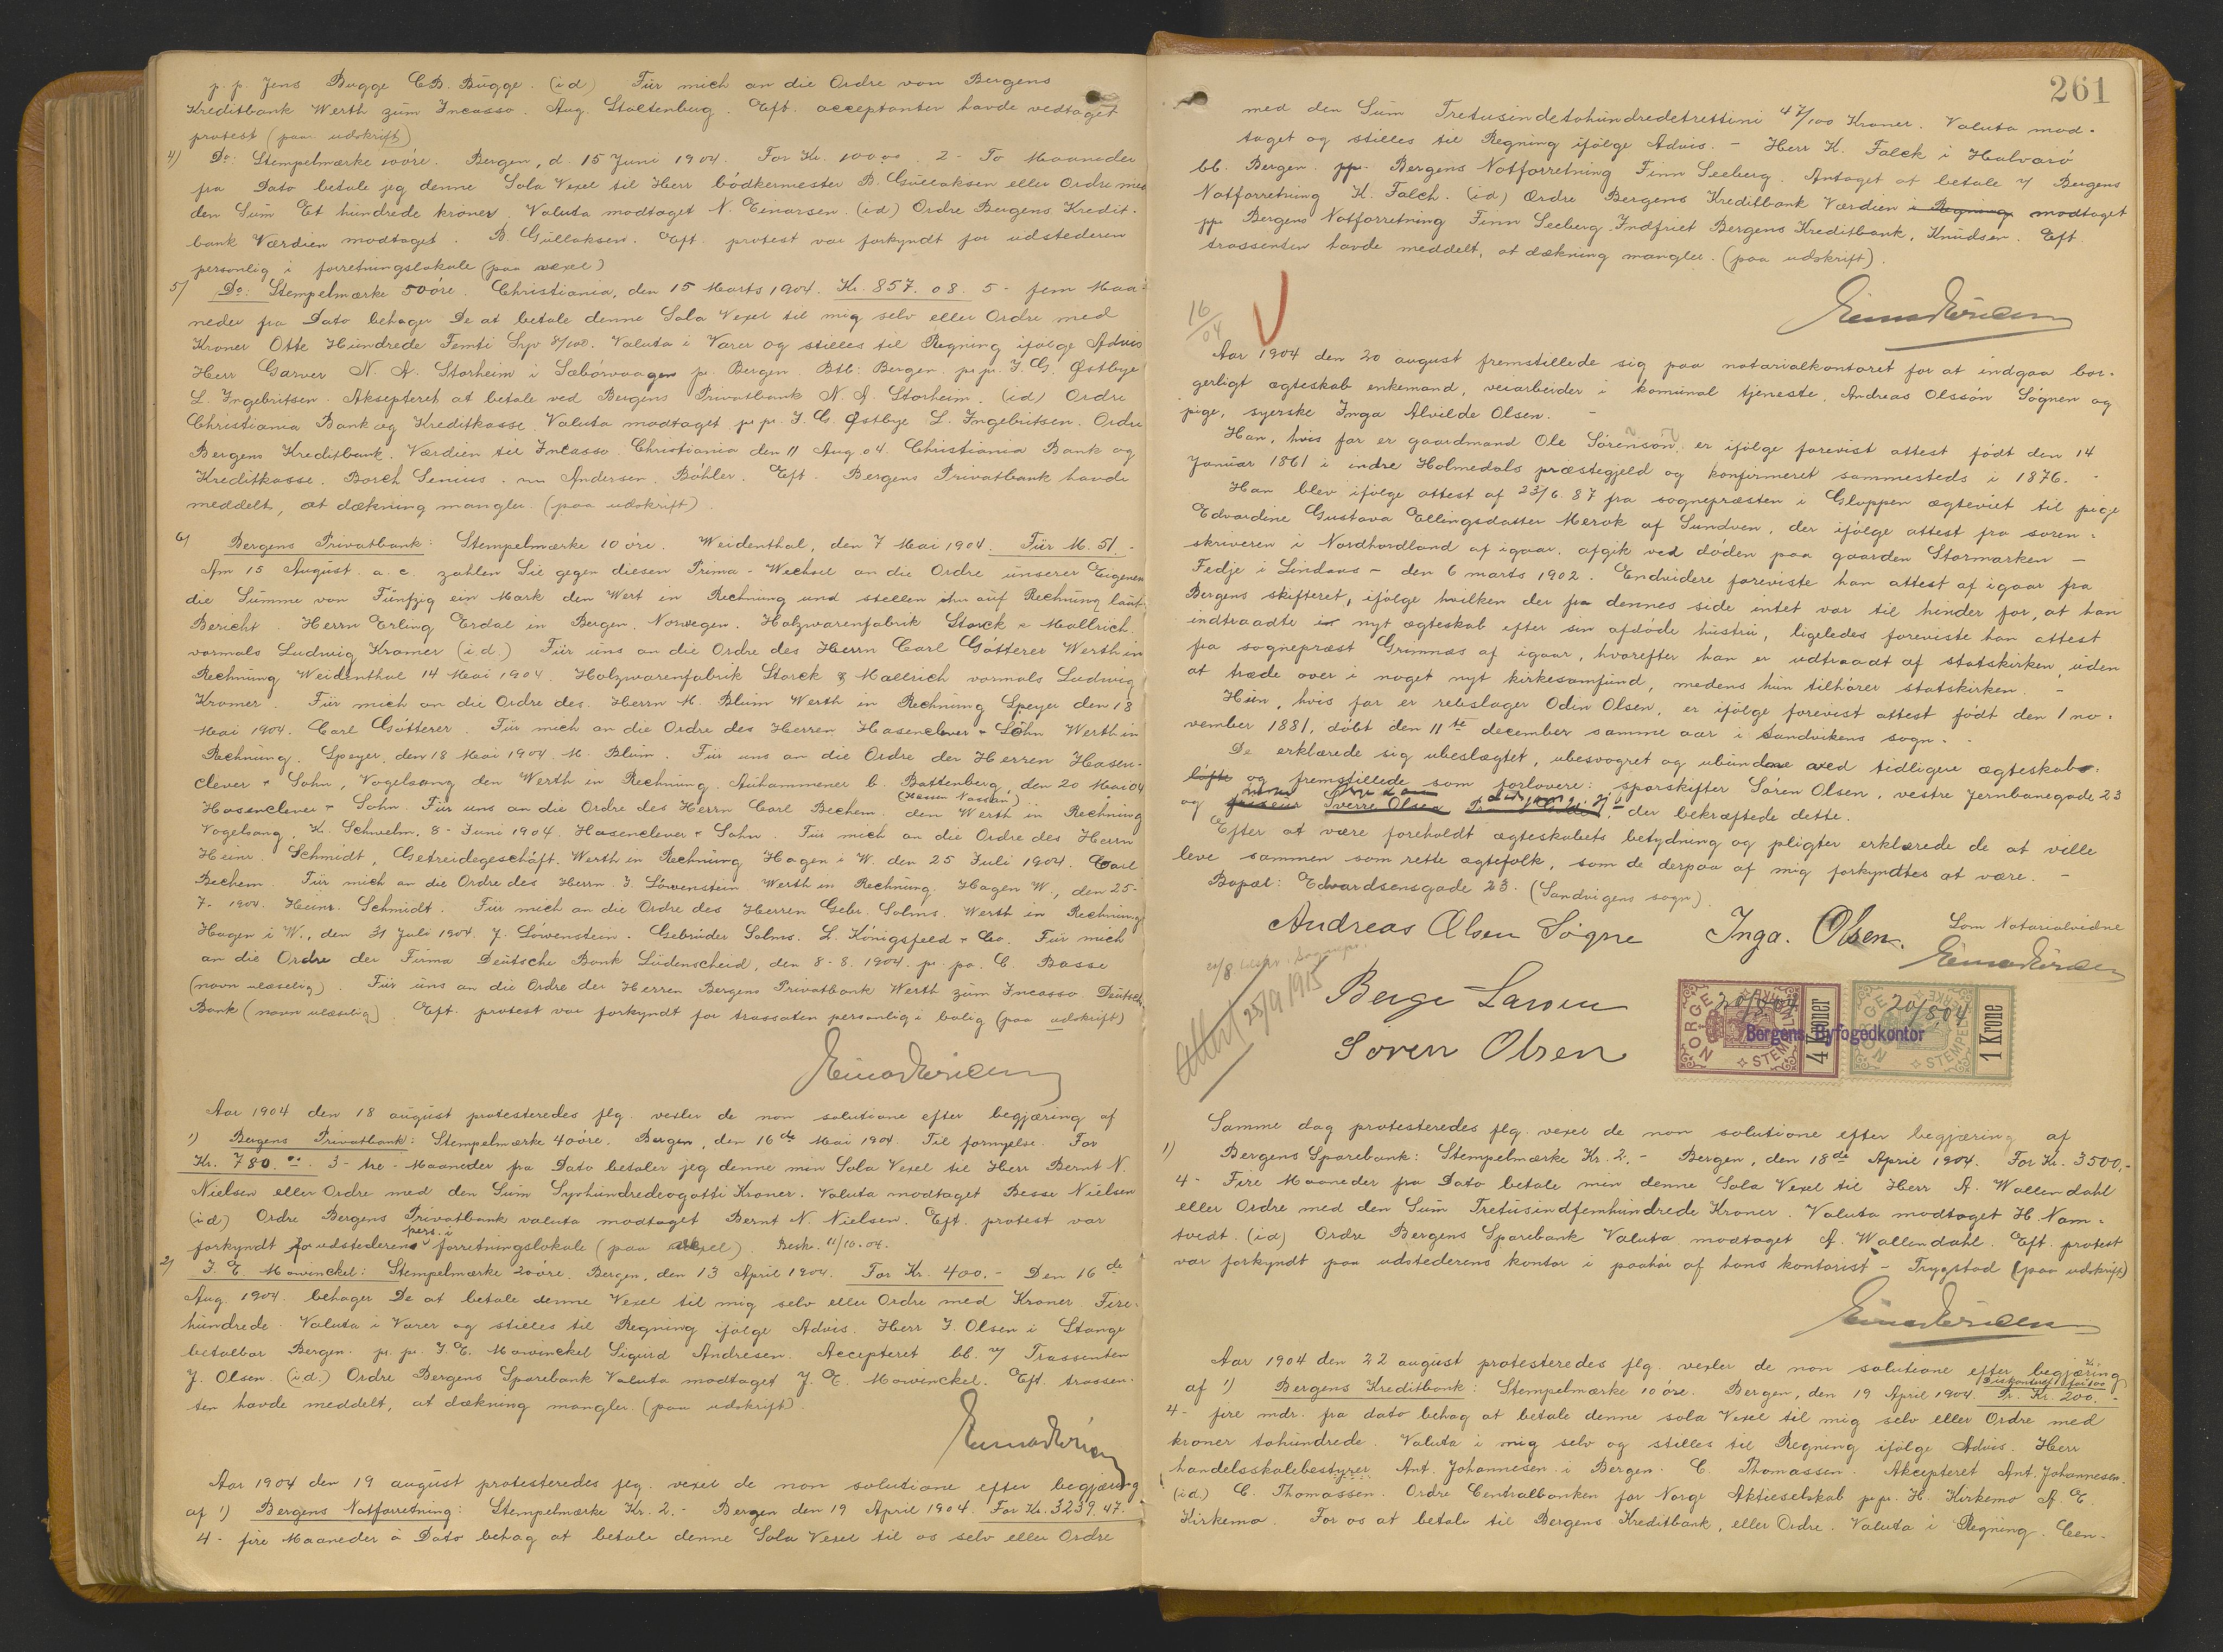 p. p. Jens Bugge C.B. Bugge. (id) Für mich an die Ordre von Bergens
Kreditbank Werth zum Incasso. Aug. Stoltenberg. Eft. acceptanten havde vedtaget
protest (paa udskrift)
4) Do: Stempelmærke 10 øre. Bergen, d. 15 Juni 1904. For Kr. 100 00 2 - To Maaneder
fra Dato betale jeg denne Sola Vexel til Herr bødkermester B. Gullaksen eller Ordre med
den Sum Et hundrede kroner. Valuta modtaget N. Einarsen. (id) Ordre Bergens Kredit-
bank Værdien modtaget. B. Gullaksen. Eft. protest var forkyndt for udstederen
personlig i forretningslokale (paa vexel)
5) Do: Stempelmærke 50 øre. Christiania, den 15 Marts 1904. Kr. 857. 08. 5 - fem Maa-
neder fra Dato behager De at betale denne Sola Vexel til mig selv eller Ordre med
Kroner Otte Hundrede Femti Syv 8/100. Valuta i Varer og stilles til Regning ifølge Advis
Herr Garver N. A. Storheim i Sæbøvaagen pr. Bergen. Btb: Bergen. pr. pr. J. G. Østbye
L. Ingebritsen. Aksepteret at betale ved Bergens Privatbank N. A. Storheim. (id) Ordre
Christiania Bank og Kreditkasse. Valuta modtaget pr. pr. J. G. Østbye L. Ingebritsen. Ordre
Bergens Kreditbank. Værdien til Incasso. Christiania den 11 Aug. 04. Christiania Bank og
Kreditkasse. Borch Senius. Andersen. Bøhler. Eft. Bergens Privatbank havde
meddelt, at dækning mangler. (paa udskrift).
6) Bergens Privatbank: Stempelmærke 10 øre. Weidenthal, den 7 Mai 1904. Für M. 51.-
Am 15 August. a. c. zahlen Sie gegen diesen Prima-Wechsel an die Ordre unserer Eigenen
die Summe von Fünfzig ein Mark den Wert in Rechnung und stellen ihn auf Rechnung laut
Bericht. Herrn Erling Erdal in Bergen, Norwegen. Holzwarenfabrik Storck & Mallrich.
vormals Ludwig Kramer (i.d.) Für uns an die Ordre des Herrn Carl Götterer Werth in
Rechnung Weidenthal 14 Mai 1904. Holzwarenfabrik Storck & Mallrich vormals Ludwig
Kramer. Für mich an die Ordre des Herrn M. Blum Werth in Rechnung Speyer den 18
Mai 1904. Carl Götterer. Für mich an die Ordre des Herren Hasenclever & Sohn Werth in
Rechnung. Speyer, den 18 Mai 1904. M. Blum. Für uns an die Ordre der Herren Hasen-
clever & Sohn, Vogelsang den Werth in Rechnung. Auhammener b. Battenberg, den 20 Mai 04
(Hessen Nassau)
Hasenclever & Sohn. Für uns an die Ordre des Herrn Carl Bechem. den Werth in Rechnung
Vogelsang, Kr. Schwelm, 8 - Juni 1904. Hasenclever & Sohn. Für mich an die Ordre des Herrn
Heinr. Schmidt, Getreidegeschäft. Werth in Rechnung Hagen i W. den 25 Juli 1904. Carl
Bechem. Für mich an die Ordre des Herrn J. Löwenstein Werth in Rechnung. Hagen W., den 25-
7. 1904. Heinr. Schmidt. Für mich an die Ordre des Herren Gebr. Salms. Werth in Rechnung
Hagen i W., den 31 Juli 1904. J. Löwenstein. Gebrüder Salms. L. Königsfeld & Co. Für mich
an die Ordre der Firma Deutsche Bank Lüdenscheid, den 8-8. 1904. pr. pa. C. Basse
(navn ulæselig). Für uns an die Ordre der Herren Bergens Privatbank Werth zum Incasso. Deutsche
Bank (navn ulæselig). Eft. protest var forkyndt for trassaten personlig i bolig (paa udskrift)
Aar 1904 den 18 august protesteredes flg. vexler de non solutione efter begjæring af
1) Bergens Privatbank: Stempelmærke 40 øre. Bergen, den 16 de Mai 1904. Til fornyelse. For
Kr. 780.00. 3 - tre - Maaneder fra Dato betaler jeg denne min Sola Vexel til Herr Bernt N.
Nielsen eller Ordre med den Sum Syvhundredeogotti Kroner. Valuta modtaget Besse Nielsen
(id) Ordre Bergens Privatbank valuta modtaget Bernt N. Nielsen. Eft. protest var
pers. i
forkyndt for udstederens forretningslokale (paa vexel). Besk. 11/10.04.
2) J. E. Mowinckel: Stempelmærke 20 øre. Bergen, den 13 April 1904. For Kr. 400.- Den 16 de
Aug. 1904. behager De at betale denne Vexel til mig selv eller Ordre med Kroner Fire-
hundrede. Valuta i Varer og stilles til Regning ifølge Advis. Herr J. Olsen i Stange
betalbar Bergen. pr. pr. J. E. Mowinckel Sigurd Andresen. Accepteret bb. v/ Trassenten
J. Olsen. (id.) Ordre Bergens Sparebank Valuta modtaget J. E. Mowinckel. Eft. trassen-
ten havde meddelt, at dækning mangler. (paa udskrift).
Aar 1904 den 19 august protesteredes flg. vexel de non solutione efter begjæring
af 1) Bergens Notforretning: Stempelmærke Kr. 2.- Bergen den 19 April 1904. For Kr. 3239.47.
4 - fire Maaneder à Dato behag at betale denne Sola Vexel til os selv eller Ordre
261
med den Sum Tretusindetohundredetrettini 47/100 Kroner. Valuta mod-
taget og stilles til Regning ifølge Advis. - Herr K. Falck i Halvarö
bb. Bergen. ppr. Bergens Notforretning Finn Seeberg. Antaget at betale v/ Bergens
Notforretning K. Falch. (id) Ordre Bergens Kreditbank Værdien i Regning modtaget
pp. Bergens Notforretning Finn Seeberg. Indfriet Bergens Kreditbank, Knudsen. Eft.
trassenten havde meddelt, at dækning mangler. (paa udskrift).
16/04
Aar 1904 den 20 august fremstillede sig paa notarialkontoret for at indgaa bor-
gerligt ægteskab enkemand, veiarbeider i komunal tjeneste, Andreas Olssøn Søgnen og
pige, syerske Inga Alvilde Olsen. -
Han, hvis far er gaardmand Ole Sørensøn, er ifølge forevist attest født den 14
Januar 1861 i indre Holmedals præstegjeld og konfirmeret sammesteds i 1876. -
Han blev ifølge attest af 23/6. 87 fra sognepræsten i Gloppen ægteviet til pige
Edvardine Gustava Ellingsdatter Merok af Sundven, der ifølge attest fra soren-
skriveren i Nordhordland af igaar, afgik ved døden paa gaarden Stormarken -
Fedje i Lindaas - den 6 marts 1902. Endvidere foreviste han attest af igaar fra
Bergens skifteret, ifølge hvilken der fra dennes side intet var til hinder for, at han
indtraadte i nyt ægteskab efter sin afdøde hustru, ligeledes foreviste han attest
fra sognepræst Grimnæs af igaar, hvorefter han er udtraadt af statskirken, uden
at træde over i noget nyt kirkesamfund, medens hun tilhører statskirken. -
Hun, hvis far er rebslager Odin Olsen, er ifølge forevist attest født den 1 no-
vember 1881, døbt den 11te december samme aar i Sandvikens sogn. -
De erklærede sig ubeslægtet, ubesvogret og ubundne ved tidligere ægteskabs-
løfte og fremstillede som forlovere: sporskifter Søren Olsen, vestre Jernbanegade 23
og friseur Sverre Olsen der bekræftede dette.
Efter at være foreholdt ægteskabets betydning og pligter erklærede de at ville
leve sammen som rette ægtefolk, som de derpaa af mig forkyndtes at være. -
Bopæl: Edvardsensgade 23. (Sandvigens sogn).
Andreas Olsen Søgne Inga. Olsen. Som Notarialvidne
Attest 25/9 1915
Berge Larsen
Søren Olsen
NORGE STEMPELMÆRKE 4 Kroner 20/8 04
NORGE STEMPELMÆRKE 1 Krone 20/8 04
Bergens Byfogedkontor
Samme dag protesteredes flg. vexel de non solutione efter begjæring af
1) Bergens Sparebank: Stempelmærke Kr. 2.- Bergen, den 18de April 1904. For Kr. 3500.-
4 - Fire Maaneder fra Dato betale min denne Sola Vexel til Herr A. Wallendahl
eller Ordre med den Sum Tretusindfemhundrede Kroner. Valuta modtaget H. Nom-
tvedt. (id) Ordre Bergens Sparebank Valuta modtaget A. Wallendahl. Eft. protest
var forkyndt paa udstederens kontor i paahør af hans kontorist - Trygstad (paa udskrift)
Aar 1904 den 22 august protesteredes flg. vexler de non solutione efter begjæring
af 1) Bergens Kreditbank: Stempelmærke 10 øre. Bergen, den 19 April 1904. Pr. Kr. 200.-
4 - fire mdr. fra dato behag at betale denne sola Vexel til mig selv eller Ordre med
kroner tohundrede. Valuta i mig selv og stilles til Regning ifølge Advis. Herr
handelsskolebestyrer Ant. Johannesen i Bergen. C. Thomassen. Akcepteret Ant. Johannesen.
(id.) C. Thomassen. Ordre Centralbanken for Norge Aktieselskab pr. pr. H. Kirkemo A. E.
Kirkemo. For os at betale til Bergens Kreditbank, eller Ordre. Valuta i Regning. Cen-